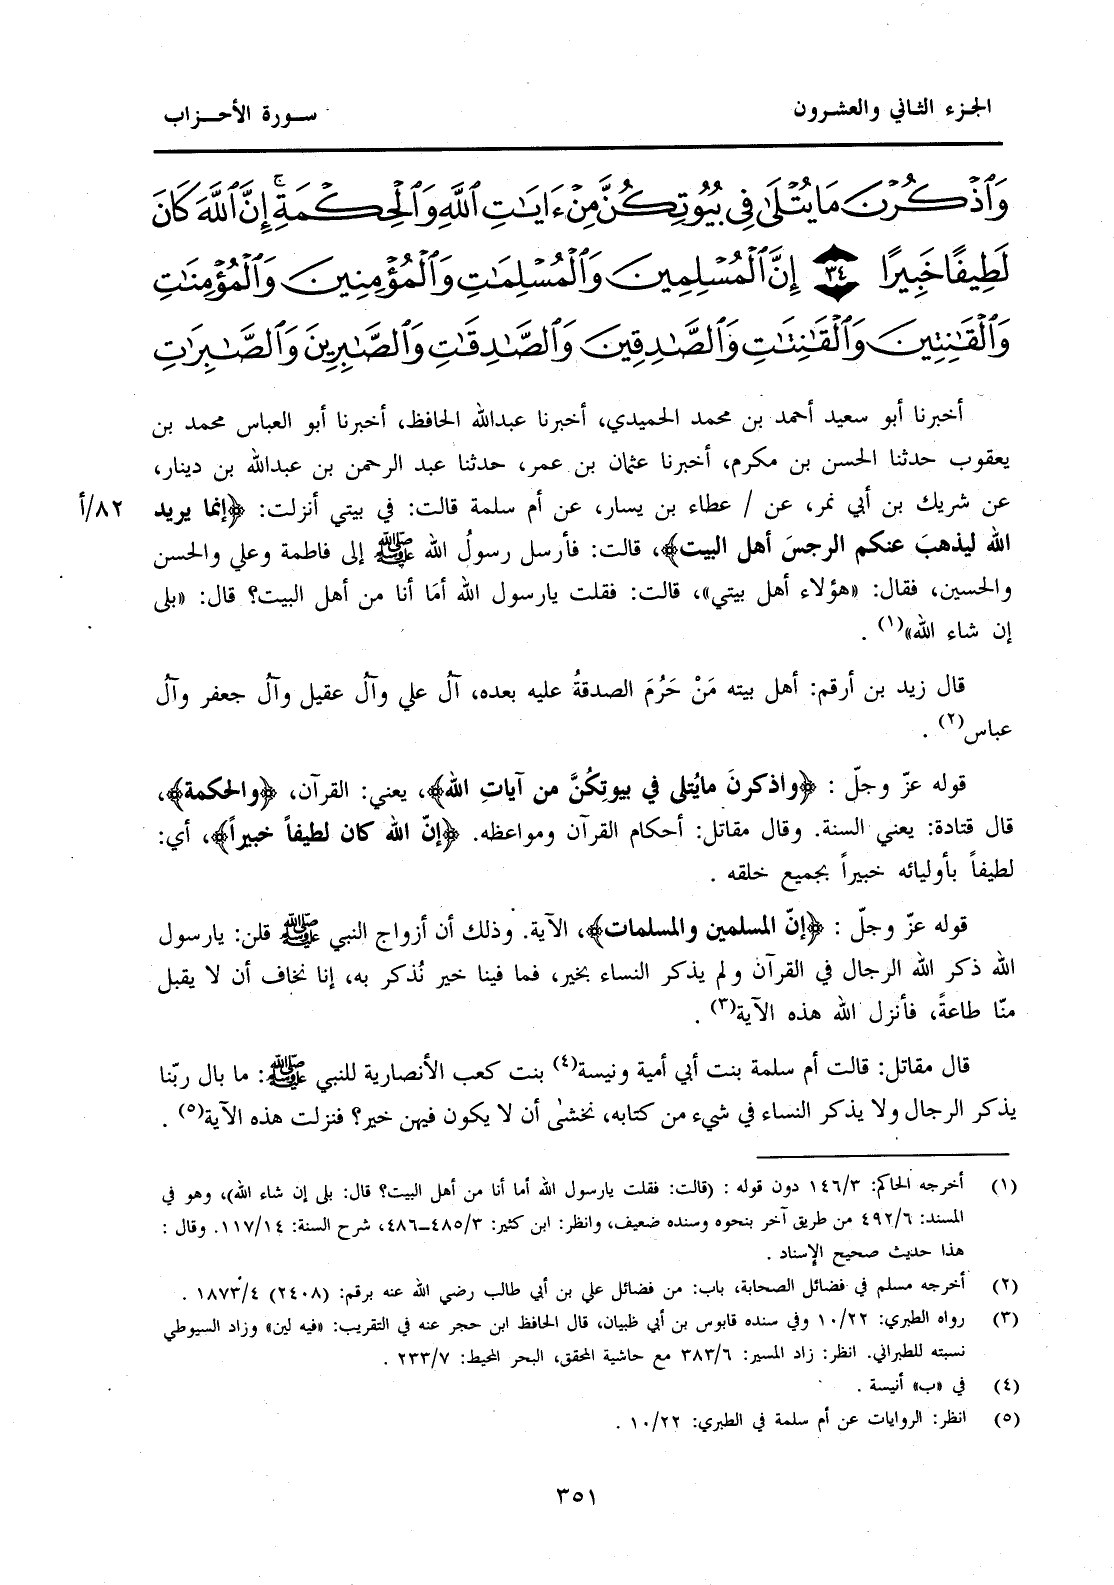 الجزء الثاني والعشرون
سورة الأحزاب
وَاذْكُرْنَ مَا يُتْلَىٰ فِي بُيُوتِكُنَّ مِنْ ءَايَٰتِ اللَّهِ وَالْحِكْمَةِ ۚ إِنَّ اللَّهَ كَانَ
لَطِيفًا خَبِيرًا ﴿٣٤﴾ إِنَّ الْمُسْلِمِينَ وَالْمُسْلِمَٰتِ وَالْمُؤْمِنِينَ وَالْمُؤْمِنَٰتِ
وَالْقَٰنِتِينَ وَالْقَٰنِتَٰتِ وَالصَّٰدِقِينَ وَالصَّٰدِقَٰتِ وَالصَّٰبِرِينَ وَالصَّٰبِرَٰتِ
أخبرنا أبو سعيد أحمد بن محمد الحميدي، أخبرنا عبدالله الحافظ، أخبرنا أبو العباس محمد بن
يعقوب حدثنا الحسن بن مكرم، أخبرنا عثمان بن عمر، حدثنا عبد الرحمن بن عبدالله بن دينار،
عن شريك بن أبي نمر، عن / عطاء بن يسار، عن أم سلمة قالت: في بيتي أنزلت: ﴿إنما يريد ٨٢/أ
الله ليذهبَ عنكم الرجسَ أهل البيت﴾، قالت: فأرسل رسولُ الله ﷺ إلى فاطمة وعلي والحسن
والحسين، فقال: «هؤلاء أهل بيتي»، قالت: فقلت يارسول الله أمَا أنا من أهل البيت؟ قال: «بلى
إن شاء الله»(١) .
قال زيد بن أرقم: أهل بيته مَنْ حَرُمَ الصدقةُ عليه بعده، آلُ علي وآلُ عقيل وآلُ جعفر وآلُ
عباس(٢) .
قوله عزّ وجلّ : ﴿واذكرنَ مايُتلى في بيوتِكُنَّ من آياتِ الله﴾، يعني: القرآن، ﴿والحكمة﴾،
قال قتادة: يعني السنة. وقال مقاتل: أحكام القرآن ومواعظه. ﴿إنّ الله كان لطيفاً خبيراً﴾، أي:
لطيفاً بأوليائه خبيراً بجميع خلقه .
قوله عزّ وجلّ : ﴿إنّ المسلمين والمسلمات﴾، الآية. وذلك أن أزواج النبي ﷺ قلن: يارسول
الله ذكر الله الرجال في القرآن ولم يذكر النساء بخير، فما فينا خير نُذكر به، إنا نخاف أن لا يقبل
منّا طاعةً، فأنزل الله هذه الآية(٣) .
قال مقاتل: قالت أم سلمة بنت أبي أمية ونيسة(٤) بنت كعب الأنصارية للنبي ﷺ: ما بال ربّنا
يذكر الرجال ولا يذكر النساء في شيء من كتابه، نخشىٰ أن لا يكون فيهن خير؟ فنزلت هذه الآية(٥) .
(١) أخرجه الحاكم: ١٤٦/٣ دون قوله : (قالت: فقلت يارسول الله أما أنا من أهل البيت؟ قال: بلى إن شاء الله)، وهو في
المسند: ٤٩٢/٦ من طريق آخر بنحوه وسنده ضعيف، وانظر: ابن كثير: ٤٨٥/٣–٤٨٦، شرح السنة: ١١٧/١٤. وقال :
هذا حديث صحيح الإسناد .
(٢) أخرجه مسلم في فضائل الصحابة، باب: من فضائل علي بن أبي طالب رضي الله عنه برقم: (٢٤٠٨) ١٨٧٣/٤ .
(٣) رواه الطبري: ١٠/٢٢ وفي سنده قابوس بن أبي ظبيان، قال الحافظ ابن حجر عنه في التقريب: «فيه لين» وزاد السيوطي
نسبته للطبراني. انظر: زاد المسير: ٣٨٣/٦ مع حاشية المحقق، البحر المحيط: ٢٣٣/٧ .
(٤) في «ب» أنيسة .
(٥) انظر: الروايات عن أم سلمة في الطبري: ١٠/٢٢ .
٣٥١